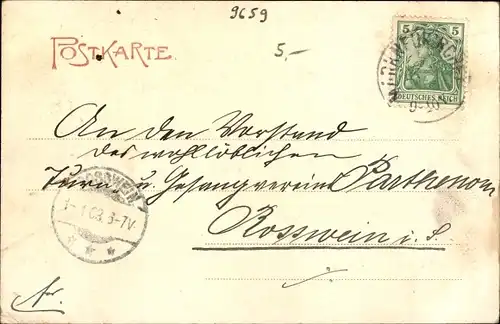 9659
5 5
POSTKARTE.
5,-
DEUTSCHES REICH
9-10
An den Vorstand
des wohllöblichen
Turn- u. Gesangverein Parthenon
ROSSWEIN
1-1 03. 6-7V.
* * *
Rosswein i. S.